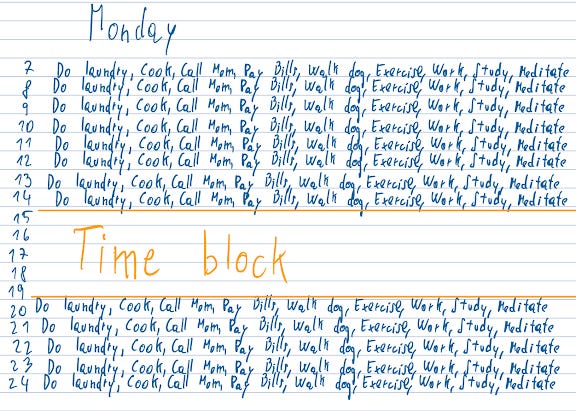 Monday
7 Do laundry, Cook, Call Mom, Pay Bills, Walk dog, Exercise, Work, Study, Meditate
8 Do laundry, Cook, Call Mom, Pay Bills, Walk dog, Exercise, Work, Study, Meditate
9 Do laundry, Cook, Call Mom, Pay Bills, Walk dog, Exercise, Work, Study, Meditate
10 Do laundry, Cook, Call Mom, Pay Bills, Walk dog, Exercise, Work, Study, Meditate
11 Do laundry, Cook, Call Mom, Pay Bills, Walk dog, Exercise, Work, Study, Meditate
12 Do laundry, Cook, Call Mom, Pay Bills, Walk dog, Exercise, Work, Study, Meditate
13 Do laundry, Cook, Call Mom, Pay Bills, Walk dog, Exercise, Work, Study, Meditate
14 Do laundry, Cook, Call Mom, Pay Bills, Walk dog, Exercise, Work, Study, Meditate
15
16
17 Time block
18
19
20 Do laundry, Cook, Call Mom, Pay Bills, Walk dog, Exercise, Work, Study, Meditate
21 Do laundry, Cook, Call Mom, Pay Bills, Walk dog, Exercise, Work, Study, Meditate
22 Do laundry, Cook, Call Mom, Pay Bills, Walk dog, Exercise, Work, Study, Meditate
23 Do laundry, Cook, Call Mom, Pay Bills, Walk dog, Exercise, Work, Study, Meditate
24 Do laundry, Cook, Call Mom, Pay Bills, Walk dog, Exercise, Work, Study, Meditate